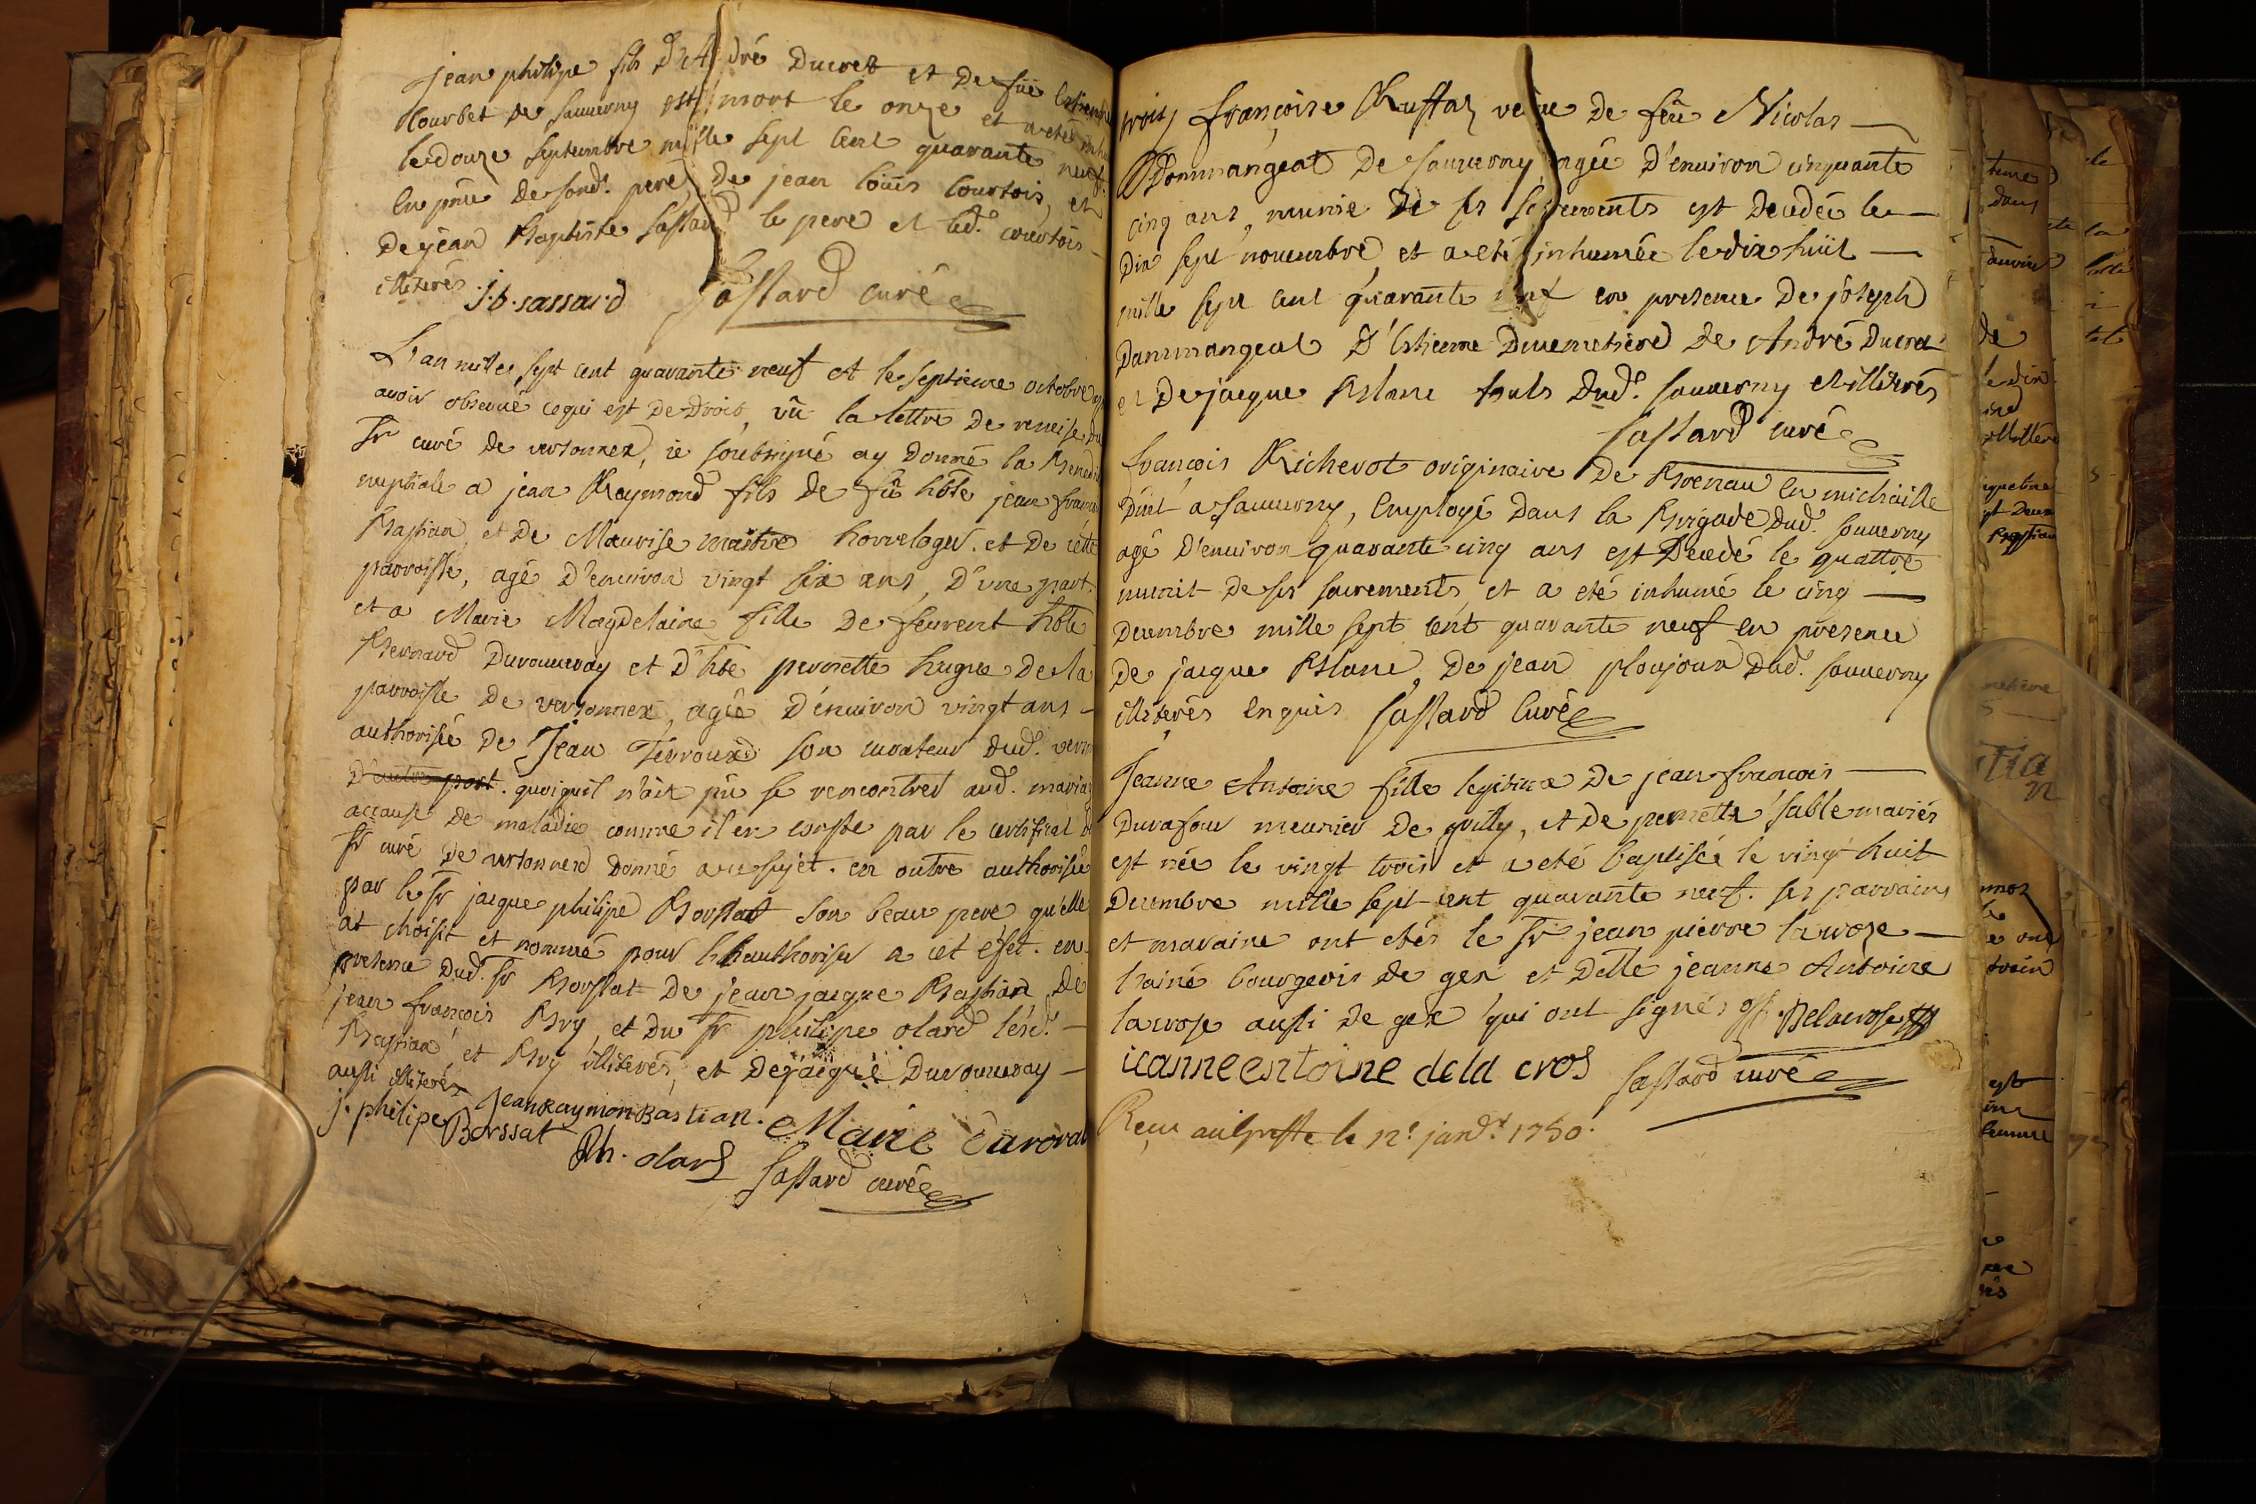 jean philipe fils d'André Ducret et de füe Estiennette
Courbet de sauverny est mort le onze et a eté inhu
le douze septembre mille sept cent quarante neuf.
En pñce de sond. pere, de jean loüis Courtois, et
de jean Baptiste Sassard le pere et led. courtois
illiterés.
j. b. sassard Sassard curé
L'an mille sept cent quarante neuf et le septieme octobre
avoir observé ce qui est de droit, vû la lettre de remise du
Sr curé de versonnex, je soubsigné ay donné la Benedi
nuptiale a jean Raymond fils de fû hble jean francois
Bastian, et de Maurise maitre horreloger. et de cette
parroisse, agé d'environ vingt six ans, d'une part.
et a Marie Magdelaine fille de feurent hble
Bernard Durouvenay et d'hble pernette hugue de la
parroisse de versonnex, agée d'environ vingt ans
authorisée de Jean Terroux son curateur dud. vers
d'autre part. quoiquil n'ait pû se rencontrer aud. maria
accause de maladie comme il en conste par le certificat d
Sr curé de versonnex donné a ce sujet. en outre authorisée
par le Sr jacque philipe Borssat son beau pere qu'elle
at choisit et nommé pour l'hauthoriser a cet éfet. en
presence dud. Sr Borssat de jean jacque Bastian, de
jean francois Bry, et du Sr philipe olard lesd.
Bastian, et Bry illiterés, et de jacque Durouvenay
aussi illiterés
Jean Raymon Bastian. Marie Durova
j. philipe Borssat
Ph. olard Sassard curé
trois françoise Russaz veuve de feu Nicolas
Dommangeat de sauverny, agée d'environ cinquante
cinq ans, munie de ses sacrements est decedée le
dix sept novembre, et a eté inhumée le dix huit
mille sept cent quarante neuf en presence de joseph
Dammangeat d'Estienne Ducimetiere de André Ducret
et de jacque Blanc touts dud. sauverny et illiterés
Sassard curé
françois Richerot originaire de Boenau en michaille
dmt a sauverny, employé dans la Brigade dud. sauverny
agé d'environ quarante cinq ans est decedé le quattre
munit de ses sacrements, et a eté inhumé le cinq
decembre mille sept cent quarante neuf en presence
de jacque Blanc, de jean ploujoux dud. sauverny
illiterés enquis Sassard Curé
Jeanne Antoine fille legitime de jean françois
Durafour meunier de grilly, et de pernette sable mariés
est née le vingt trois et a eté baptisée le vingt huit
decembre mille sept cent quarante neuf. ses parrains
et maraine ont étés le Sr jean pierre lacroze
l'ainé bourgeois de gex et delle jeanne Antoine
lacroze aussi de gex qui ont signés Delacrose
ieanne entoine de la cros Sassard curé
Reçu au greffe le 12e janvr 1750.